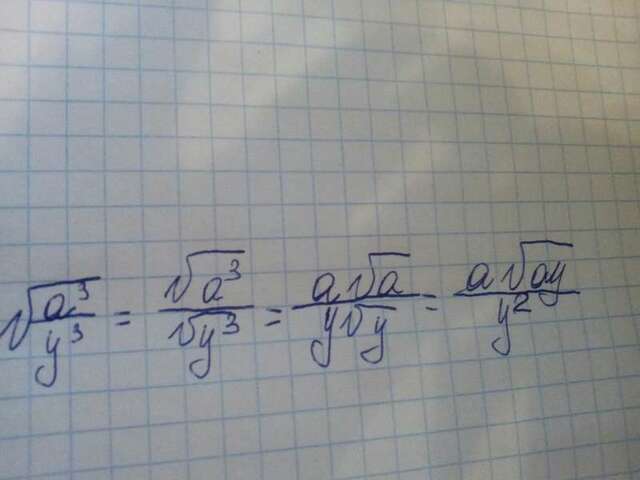 √(a³/y³) = √a³/√y³ = a√a/y√y = a√ay/y²